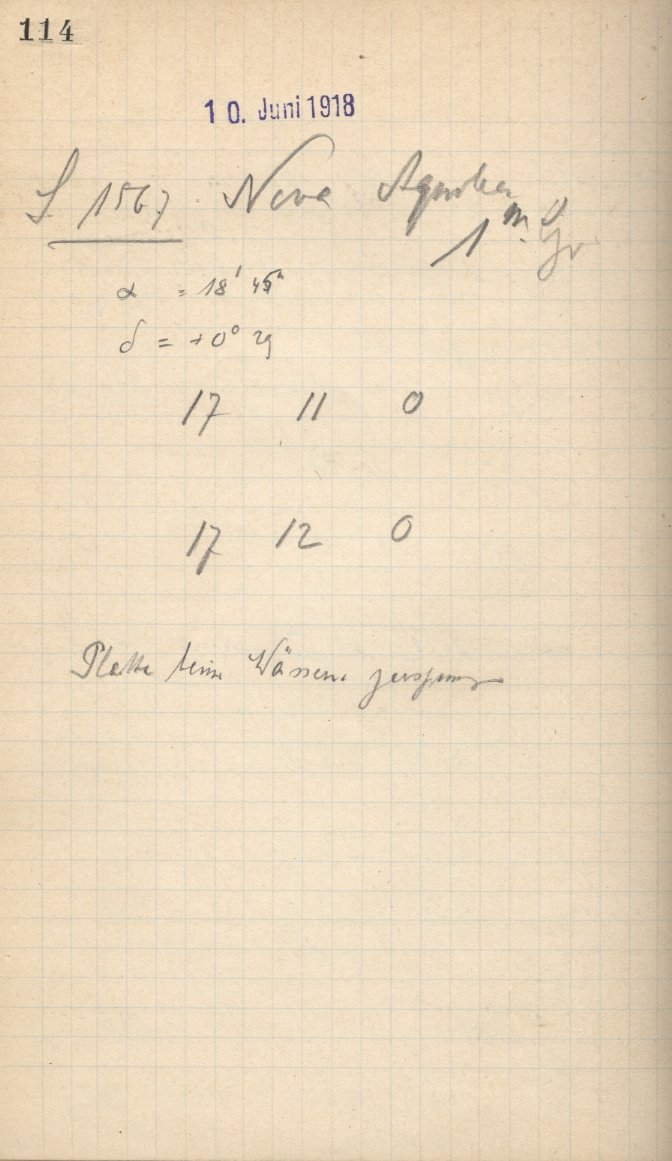 114
10. Juni 1918
S. 1567 Nova Aquilae
1 m Gr
α = 18h 45m
δ = +0° 29
17 11 0
17 12 0
Platte beim Wässern zersprungen